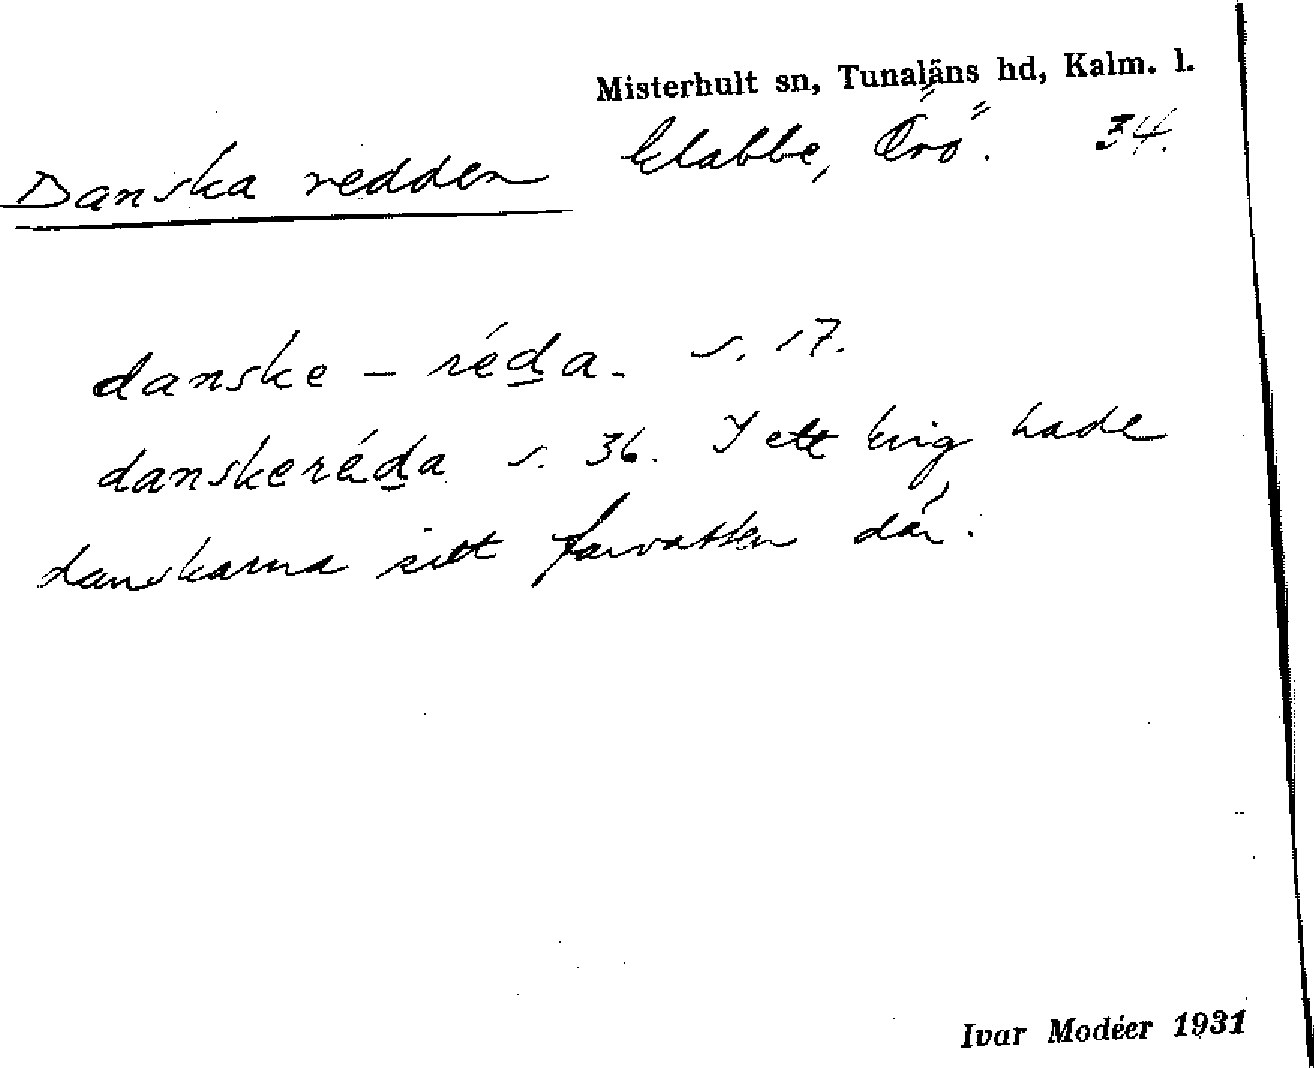 Misterhult sn, Tunaläns hd, Kalm. l.
Danska redden Klabbe, Örö. 34.
danske – réḏa. s. 17.
danskeréḏa s. 36. I ett krig hade
danskarna sitt farvatten där.
Ivar Modéer 1931